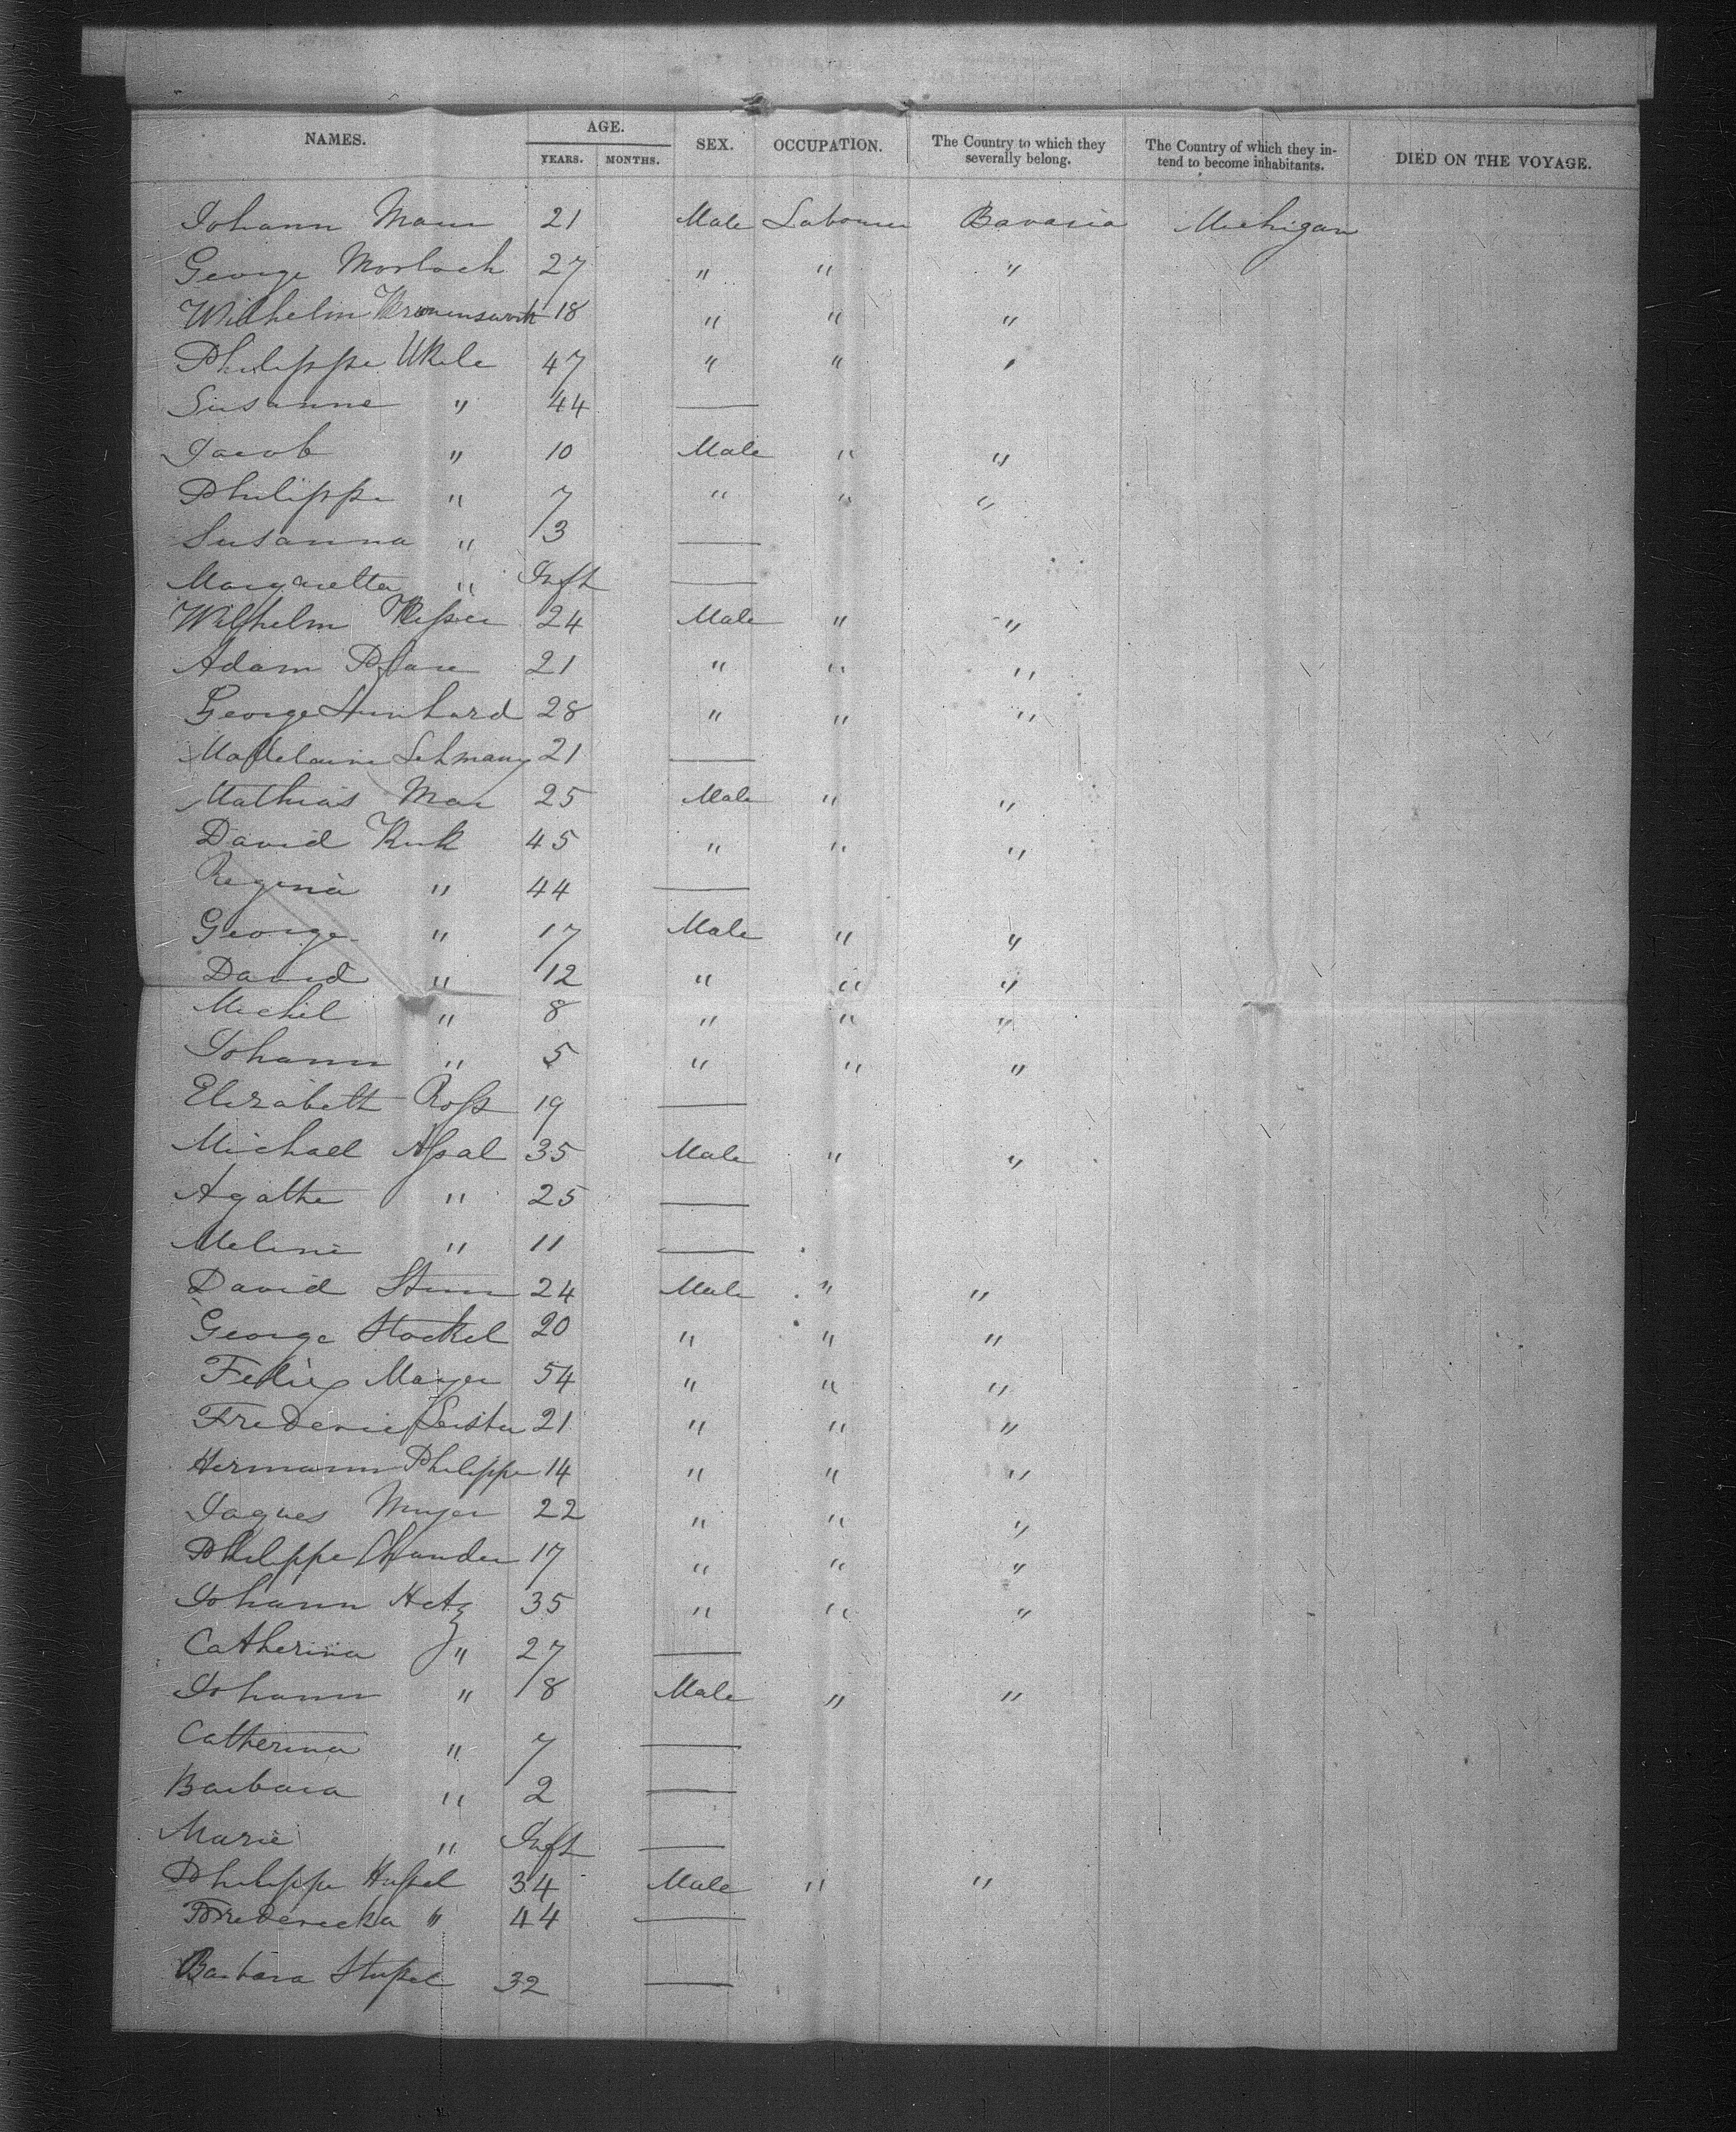 NAMES. AGE. SEX. OCCUPATION. The Country to which they severally belong. The Country of which they intend to become inhabitants. DIED ON THE VOYAGE.
YEARS. MONTHS.
Johann Mann 21 Male Labourer Bavaria Michigan
George Morloch 27 " " "
Wilhelm 18 " " "
Philippe Ukele 47 " " "
Susanne " 44 —
Jacob " 10 Male " "
Philippe " 7 " " "
Susanna " 3 —
Margaretta " Inft —
Wilhelm 24 Male " "
Adam 21 " " "
George 28 " " "
Madelaine Lehmann 21 —
Mathias 25 Male " "
David Kuk 45 " " "
Regina " 44 —
George " 17 Male " "
David " 12 " " "
Michel " 8 " " "
Johann " 5 " " "
Elizabeth Roſs 19 —
Michael 35 Male " "
Agathe " 25 —
Meline " 11 —
David 24 Male " "
George Stockel 20 " " "
Mayer 54 " " "
Frederic 21 " " "
Hermann Philippe 14 " " "
Jaques Meyer 22 " " "
Philippe 17 " " "
Johann Hetz 35 " " "
Catherina " 27 —
Johann " 8 Male " "
Catherina " 7 —
Barbara " 2 —
Marie " Inft —
Philippe 34 Male " "
Fredericka " 44 —
Barbara 32 —